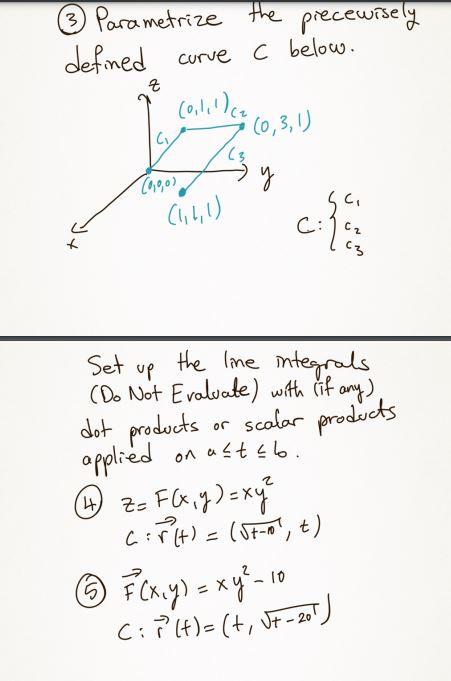 ③ Parametrize the piecewisely
defined curve C below.
z
(0,1,1) C₂ (0,3,1)
C₁
C₃
(0,0,0) y
(1,1,1)
x
C: { C₁
C₂
C₃
Set up the line integrals
(Do Not Evaluate) with (if any)
dot products or scalar products
applied on a ≤ t ≤ b.
④ z = F(x,y) = xy²
C: r⃗(t) = (√t-10, t)
⑤ F⃗(x,y) = xy² - 10
C: r⃗(t) = (t, √t-20)